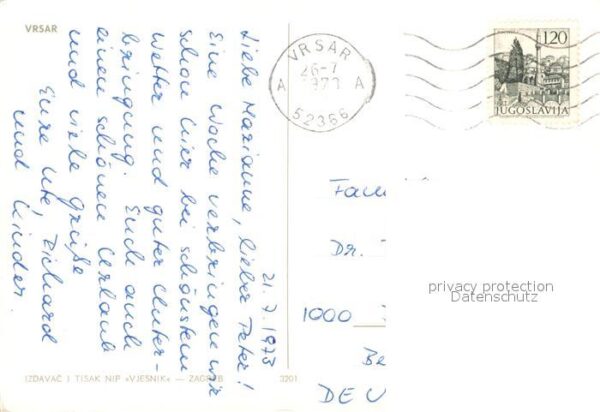 VRSAR
21.7.1973
Liebe Marianne, lieber Peter!
Eine Woche verbringen wir
schon hier bei schönstem
Wetter und guter Unter-
bringung. Euch auch
einen schönen Urlaub
und viele Grüße
Eure Ute, Richard
und Kinder.
VRSAR
26-7
1973
A A
52366
1.20
JUGOSLAVIJA
Fam
Dr.
1000
Be
DEU
privacy protection
Datenschutz
IZDAVAČ I TISAK NIP »VJESNIK« — ZAGREB 3201